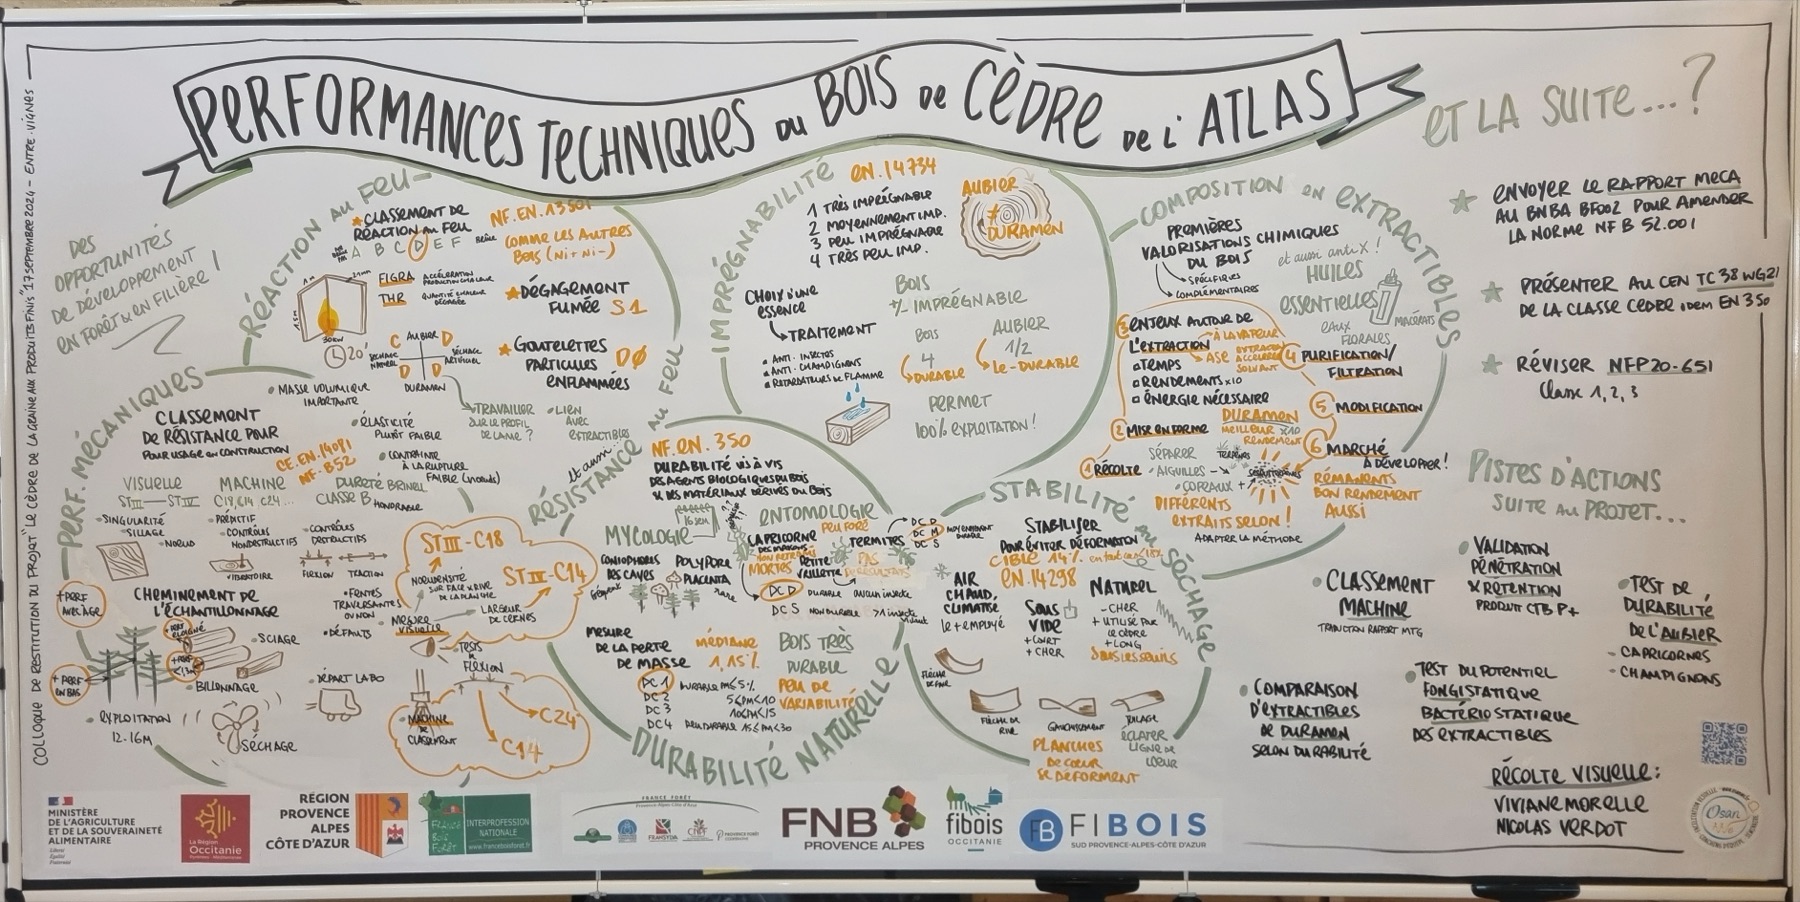 PERFORMANCES TECHNIQUES DU BOIS DE CÈDRE DE L'ATLAS
COLLOQUE DE RESTITUTION DU PROJET "LE CÈDRE DE LA GRAINE AUX PRODUITS FINIS" 17 SEPTEMBRE 2024 - ENTRE-VIGNES
DES
OPPORTUNITÉS
DE DÉVELOPPEMENT
EN FORÊT & EN FILIÈRE !
RÉACTION AU FEU
CLASSEMENT DE
RÉACTION AU FEU
NF.EN.13501
A B C D E F
COMME LES AUTRES
BOIS (Ni+ Ni-)
FIGRA ACCÉLÉRATION
PRODUCTION CHALEUR
THR QUANTITÉ CHALEUR
DÉGAGÉE
1m
1,5m
30KW
20'
DÉGAGEMENT
FUMÉE S1
GOUTELETTES
PARTICULES DØ
ENFLAMMÉES
C AUBIER D
SÉCHAGE
NATUREL
SÉCHAGE
ARTIFICIEL
D D
DURAMEN
TRAVAILLER
SUR LE PROFIL
DE LAME ?
LIEN
AVEC
EXTRACTIBLES
PERF. MÉCANIQUES
MASSE VOLUMIQUE
IMPORTANTE
CLASSEMENT
DE RÉSISTANCE POUR
POUR USAGE EN CONSTRUCTION
ÉLASTICITÉ
PLUTÔT FAIBLE
CE.EN.14081
NF-B52
CONTRAINTE
À LA RUPTURE
FAIBLE (noeuds)
DURETÉ BRINELL
CLASSE B HONORABLE
VISUELLE
STIII — STIV
SINGULARITÉ
SILLAGE
NOEUD
MACHINE
C18, C14 C24...
PRÉDICTIF
CONTRÔLES
NONDESTRUCTIFS
VIBRATOIRE
CONTRÔLES
DESTRUCTIFS
FLEXION TRACTION
STIII-C18
STIV-C14
NOEUDOSITÉ
SUR FACE & RIVE
DE LA PLANCHE
LARGEUR
DE CERNES
FENTES
TRAVERSANTES
OU NON
DÉFAUTS
MESURE
VISUELLE
CHEMINEMENT DE
L'ÉCHANTILLONNAGE
+PERF
AVEC ÂGE
+PERF
ÉLOIGNÉ
+PERF
<13m
+PERF
EN BAS
SCIAGE
BILLONNAGE
EXPLOITATION
12-16M
SÉCHAGE
DÉPART LABO
TESTS
FLEXION
MACHINE
DE
CLASSEMENT
C24
C14
IMPRÉGNABILITÉ
EN.14734
1 TRÈS IMPRÉGNABLE
2 MOYENNEMENT IMP.
3 PEU IMPRÉGNABLE
4 TRÈS PEU IMP.
AUBIER
≠
DURAMEN
CHOIX D'UNE
ESSENCE
TRAITEMENT
ANTI-INSECTES
ANTI-CHAMPIGNONS
RETARDATEURS DE FLAMME
BOIS
+/- IMPRÉGNABLE
BOIS
4
DURABLE
AUBIER
1/2
Le-DURABLE
PERMET
100% EXPLOITATION !
et aussi
RÉSISTANCE AU FEU
NF.EN.350
DURABILITÉ VIS À VIS
DES AGENTS BIOLOGIQUES DU BOIS
& DES MATÉRIAUX DÉRIVÉS DU BOIS
16 SEM
MYCOLOGIE
CONIOPHORES
DES CAVES
fréquent
POLYPORE
PLACENTA
rare
ENTOMOLOGIE
CAPRICORNE
DES MAISONS
MORTES
PEU FORÉ
PETITE
VRILLETTE
TERMITES
PAS
DC D
DC M
DC S
MOYENNEMENT
DURABLE
DC D DURABLE aucun insecte
DC S NON DURABLE >1 insecte vivant
MESURE
DE LA PERTE
DE MASSE
MÉDIANE
1,15%
DC1 DURABLE PM≤5%
DC2 5≤PM<10
DC3 10≤PM≤15
DC4 PEU DURABLE 15≤PM<30
BOIS TRÈS
DURABLE
PEU DE
VARIABILITÉ
DURABILITÉ NATURELLE
COMPOSITION EN EXTRACTIBLES
PREMIÈRES
VALORISATIONS CHIMIQUES
DU BOIS
SPÉCIFIQUES
COMPLÉMENTAIRES
et aussi anti X !
HUILES
ESSENTIELLES
EAUX
FLORALES
MACÉRATS
3 ENJEUX AUTOUR DE
L'EXTRACTION
À LA VAPEUR
ASE EXTRACTION
ACCÉLÉRÉE
SOLVANT
TEMPS
RENDEMENTS X10
ÉNERGIE NÉCESSAIRE
4 PURIFICATION/
FILTRATION
5 MODIFICATION
6 MARCHÉ
À DÉVELOPPER !
DURAMEN
MEILLEUR X10
RENDEMENT
2 MISE EN FORME
SÉPARER
AIGUILLES
COPEAUX
1 RÉCOLTE
TERPÈNES
SESQUITERPÈNES
RÉMANENTS
BON RENDEMENT
AUSSI
DIFFÉRENTS
EXTRAITS SELON !
ADAPTER LA MÉTHODE
STABILITÉ AU SÉCHAGE
STABILISER
POUR ÉVITER DÉFORMATION
CIBLE 14% en tout cas <18%
EN.14298
AIR
CHAUD,
CLIMATISÉ
le + employé
SOUS
VIDE
+ COURT
+ CHER
NATUREL
- CHER
+ UTILISÉ PAR
LE CÈDRE
+ LONG
FLÈCHE
DE FACE
FLÈCHE DE
RIVE
GAUCHISSEMENT
TUILAGE
PLANCHES
DE COEUR
SE DÉFORMENT
ÉCLATER
LIGNE DE
COEUR
ET LA SUITE...?
ENVOYER LE RAPPORT MECA
AU BNBA BF002 POUR AMENDER
LA NORME NF B 52.001
PRÉSENTER AU CEN TC 38 WG21
DE LA CLASSE CÈDRE IDEM EN 350
RÉVISER NFP20-651
Classe 1, 2, 3
PISTES D'ACTIONS
SUITE AU PROJET...
CLASSEMENT
MACHINE
TRADUCTION RAPPORT MTG
VALIDATION
PÉNÉTRATION
& RÉTENTION
PRODUIT CTB P+
TEST DE
DURABILITÉ
DE L'AUBIER
- CAPRICORNES
- CHAMPIGNONS
COMPARAISON
D'EXTRACTIBLES
DE DURAMEN
SELON DURABILITÉ
TEST DU POTENTIEL
FONGISTATIQUE
BACTÉRIOSTATIQUE
DES EXTRACTIBLES
RÉCOLTE VISUELLE :
VIVIANE MORELLE
NICOLAS VERDOT
Osan
MINISTÈRE
DE L'AGRICULTURE
ET DE LA SOUVERAINETÉ
ALIMENTAIRE
Liberté
Égalité
Fraternité
La Région
Occitanie
Pyrénées - Méditerranée
RÉGION
PROVENCE
ALPES
CÔTE D'AZUR
FRANCE
BOIS
FORÊT
INTERPROFESSION
NATIONALE
www.franceboisforet.fr
FRANCE FORÊT
Provence-Alpes-Côte d'Azur
FRANSYLVA
CNPF
PROVENCE FORÊT
FNB
PROVENCE ALPES
fibois
OCCITANIE
FB FIBOIS
SUD PROVENCE-ALPES-CÔTE D'AZUR